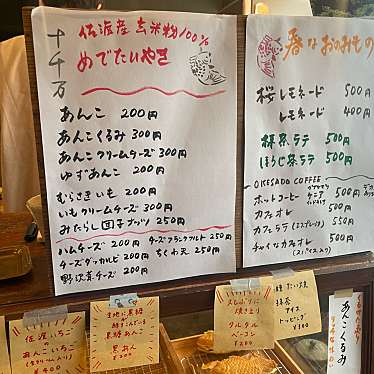 佐渡産玄米粉100%
めでたいやき
あんこ 200円
あんこくるみ 300円
あんこクリームチーズ 300円
ゆずあんこ 200円
むらさきいも 200円
いもクリームチーズ 300円
みたらし団子ナッツ 250円
ハムチーズ 200円
チーズフランクフルト 250円
チーズダッカルビ 200円
ちくわ天 250円
野沢菜チーズ 200円
春なおのみもの
桜レモネード 500円
レモネード 400円
抹茶ラテ 500円
ほうじ茶ラテ 500円
OKESADO COFFEE
ホットコーヒー 500円
カフェオレ 500円
カフェラテ(エスプレッソ) 550円
チャイなカフェオレ 500円
(スパイス入り)
佐渡いちご
あんこいちご
生地に黒糖
黒糖あん
黒あん
¥300
焼き上り
タルタル
ベーコン
抹茶
アイス
トッピング
¥300
あんこくるみ